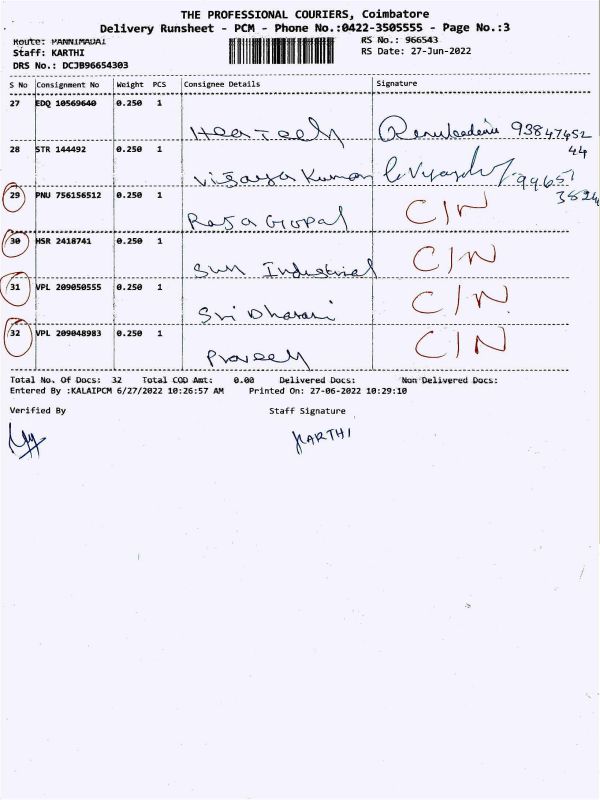 THE PROFESSIONAL COURIERS, Coimbatore
Delivery Runsheet - PCM - Phone No.:0422-3505555 - Page No.:3
Route: PANNIMADAI RS No.: 966543
Staff: KARTHI RS Date: 27-Jun-2022
DRS No.: DCJB96654303
S No Consignment No Weight PCS Consignee Details Signature
27 EDQ 10569640 0.250 1
938 47452
44
28 STR 144492 0.250 1
Vijaya Kumar 99651
3524
29 PNU 756156512 0.250 1
Raja Gopal C/N
30 HSR 2418741 0.250 1
Sun Industrial C/N
31 VPL 209050555 0.250 1
Sri Dharani C/N
32 VPL 209048983 0.250 1
Praveen C/N
Total No. Of Docs: 32 Total COD Amt: 0.00 Delivered Docs: Non Delivered Docs:
Entered By :KALAIPCM 6/27/2022 10:26:57 AM Printed On: 27-06-2022 10:29:10
Verified By Staff Signature
KARTHI